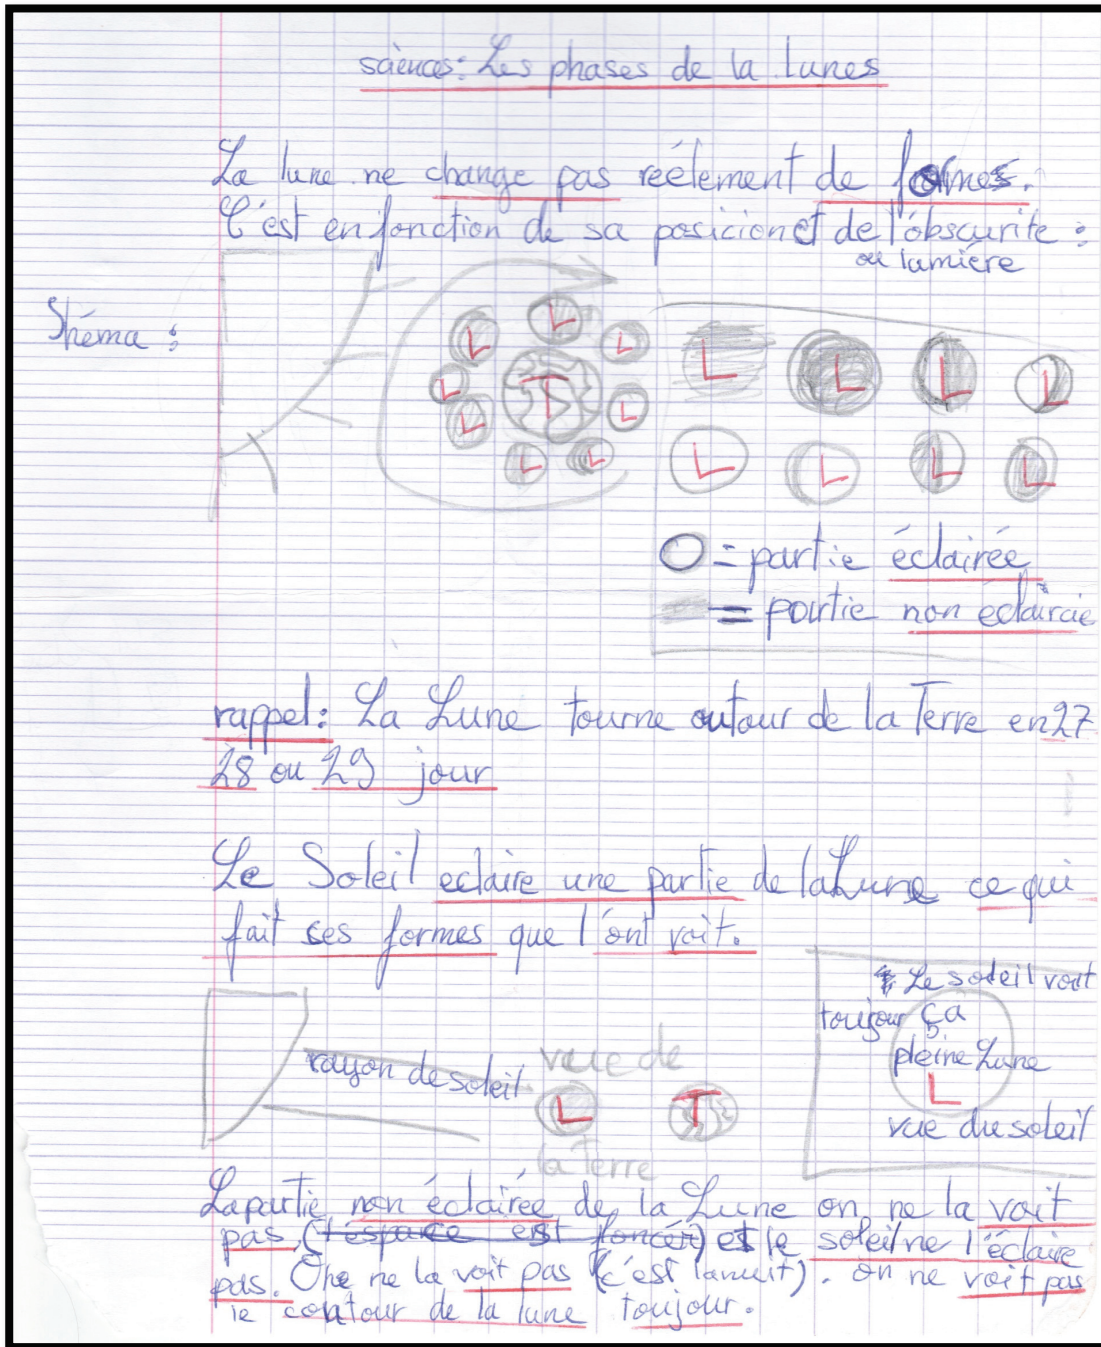 sciences: Les phases de la lunes
La lune ne change pas reéelement de formes.
C'est en fonction de sa posicion et de l'óbscurite :
ou lumiére
Shéma :
L L L L L L L L L
T
L L L L
L L L L
= partie éclairée
= partie non eclaircie
rappel: La Lune tourne autour de la Terre en 27
28 ou 29 jour
Le Soleil eclaire une partie de la Lune ce qui
fait ses formes que l'ont voit.
Le soleil voit
toujour ça
pleine Lune
L
vue du soleil
rayon de soleil
vue de
L T
la Terre
La partie non éclairée de la Lune on ne la voit
pas (l'espace est foncér) et le soleil ne l'éclaire
pas. One ne la voit pas (c'est la nuit). on ne voit pas
le contour de la lune toujour.